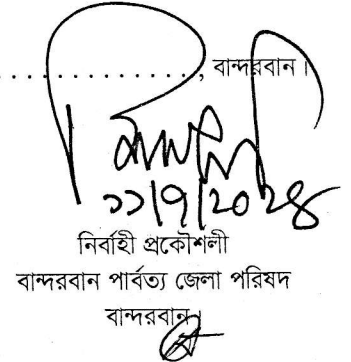 . . . . . . . . . . . . . . . . , বান্দরবান।
১১/৭/২০২৪
নির্বাহী প্রকৌশলী
বান্দরবান পার্বত্য জেলা পরিষদ
বান্দরবান।